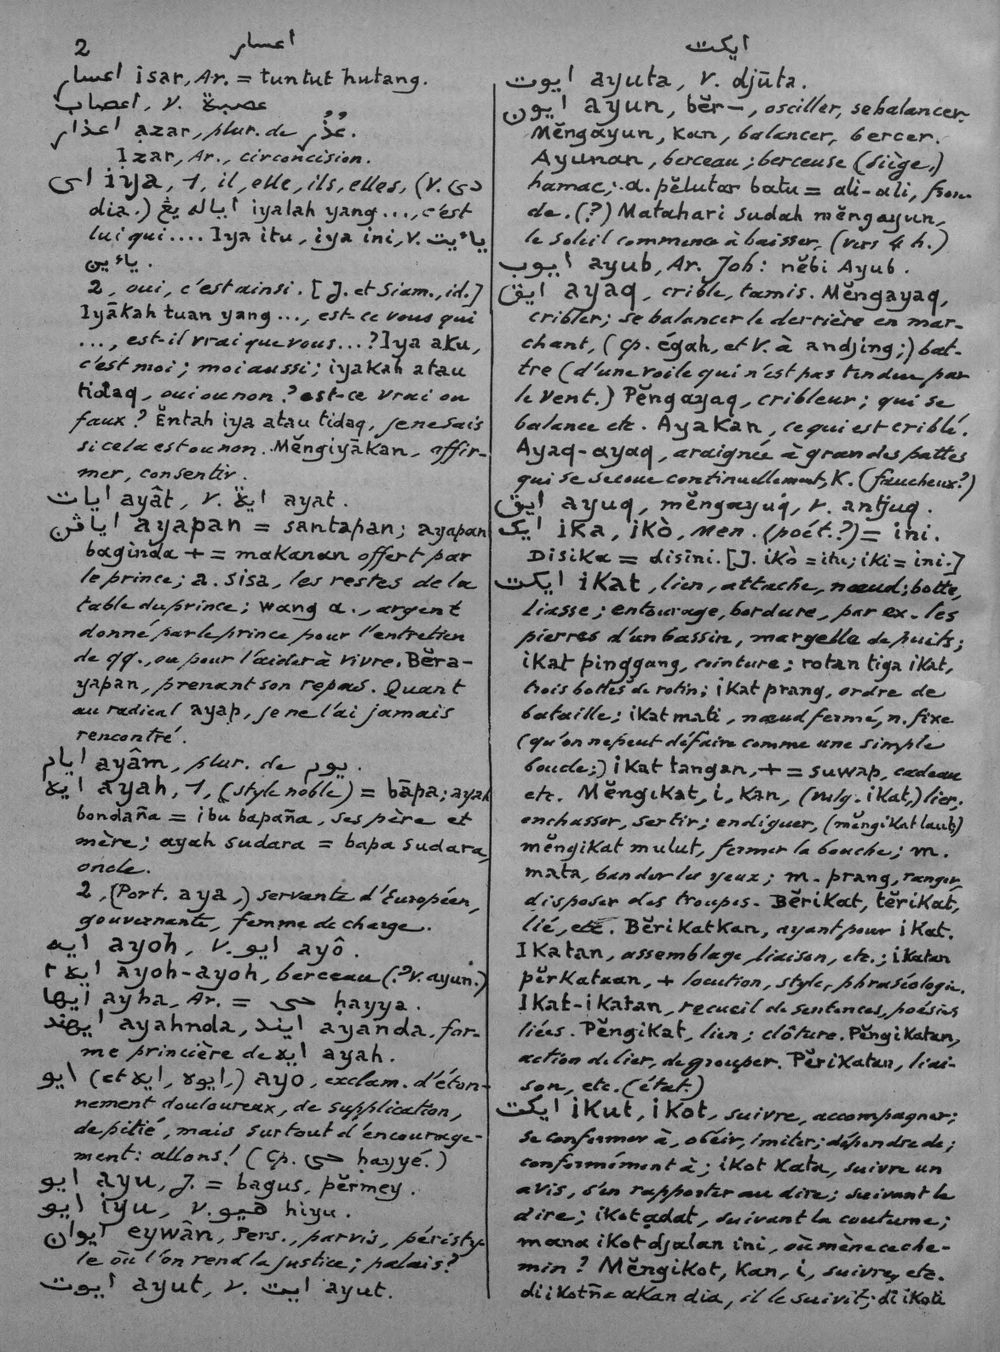 2
اعسار
اعسار isar, Ar. = tuntut hutang.
اعصاب, v. عصبة
اعذار azar, plur. de عُذُر.
Izar, Ar., circoncision.
اى iya, 1, il, elle, ils, elles, (v. دى
dia.) اياله يڠ iyalah yang ..., c'est
lui qui .... Iya itu, iya ini, v. ياءيت
ياءين.
2, oui, c'est ainsi. [J. et Siam., id.]
Iyākah tuan yang ..., est-ce vous qui
..., est-il vrai que vous ...? Iya aku,
c'est moi; moi aussi; iyakah atau
tidaq, oui ou non? est-ce vrai ou
faux? Ĕntah iya atau tidaq, je ne sais
si cela est ou non. Mĕngiyākan, affir-
mer, consentir.
ايات ayât, v. اية ayat.
اياڤن ayapan = santapan; ayapan
baginda + = makanan offert par
le prince; a. sisa, les restes de la
table du prince; wang a., argent
donné par le prince pour l'entretien
de qq., ou pour l'aider à vivre. Bĕra-
yapan, prenant son repas. Quant
au radical ayap, je ne l'ai jamais
rencontré.
ايام ayâm, plur. de يوم.
ايه ayah, 1, (style noble) = bāpa; ayah
bondaña = ibu bapaña, ses père et
mère; ayah sudara = bapa sudara,
oncle.
2, (Port. aya,) servante d'Européen,
gouvernante, femme de charge.
ايه ayoh, v. ايو ayô.
ايه٢ ayoh-ayoh, berceau (? v. ayun.)
ايها ayha, Ar. = حى ḥayya.
ايهند ayahnda, ايند ayanda, for-
me princière de ايه ayah.
ايو (et ايه, ايوه,) ayo, exclam. d'éton-
nement douloureux, de supplication,
de pitié, mais surtout d'encourage-
ment: allons! (cp. حى ḥayyé.)
ايو ayu, J. = bagus, pĕrmey.
ايو iyu, v. هيو hiyu.
ايوان eywân, Pers., parvis, péristy-
le où l'on rend la justice; palais?
ايوت ayut, v. ايت ayut.
ايكت
ايوت ayuta, v. djūta.
ايون ayun, bĕr-, osciller, se balancer.
Mĕngayun, kan, balancer, bercer.
Ayunan, berceau; berceuse (siège,)
hamac; a. pĕlutar batu = ali-ali, fron-
de. (?) Matahari sudah mĕngayun,
le soleil commence à baisser, (vers 4 h.)
ايوب ayub, Ar. Job: nĕbi Ayub.
ايق ayaq, crible, tamis. Mĕngayaq,
cribler; se balancer le derrière en mar-
chant, (cp. egah, et v. à andjing;) bat-
tre (d'une voile qui n'est pas tendue par
le vent.) Pĕngayaq, cribleur; qui se
balance etc. Ayakan, ce qui est criblé.
Ayaq-ayaq, araignée à grandes pattes
qui se secoue continuellement, K. (faucheux?)
ايق ayuq, mĕngayuq, v. antjuq.
ايك ika, ikò, Men. (poét.?) = ini.
Disika = disini. [J. ikò = itu; iki = ini.]
ايكت ikat, lien, attache, nœud; botte,
liasse; entourage, bordure, par ex. les
pierres d'un bassin, margelle de puits;
ikat pinggang, ceinture; rotan tiga ikat,
trois bottes de rotin; ikat prang, ordre de
bataille; ikat mati, nœud fermé, n. fixe
(qu'on ne peut défaire comme une simple
boucle;) ikat tangan, + = suwap, cadeau
etc. Mĕngikat, i, kan, (vulg. ikat,) lier,
enchasser, sertir; endiguer, (mĕngikat laut;)
mĕngikat mulut, fermer la bouche; m.
mata, bander les yeux; m. prang, ranger,
disposer des troupes. Bĕrikat, tĕrikat,
lié, etc. Bĕrikatkan, ayant pour ikat.
Ikatan, assemblage, liaison, etc.; ikatan
pĕrkataan, + locution, style, phraséologie.
Ikat-ikatan, recueil de sentences, poésies
liées. Pĕngikat, lien; clôture. Pĕngikatan,
action de lier, de grouper. Pĕrikatan, liai-
son, etc. (état.)
ايكت ikut, ikot, suivre, accompagner;
se conformer à, obéir, imiter; dépendre de;
conformément à; ikot kata, suivre un
avis, s'en rapporter au dire; suivant le
dire; ikot adat, suivant la coutume;
mana ikot djalan ini, où mène ce che-
min? Mĕngikot, kan, i, suivre, etc.
diikotñe akan dia, il le suivit; di ikoti